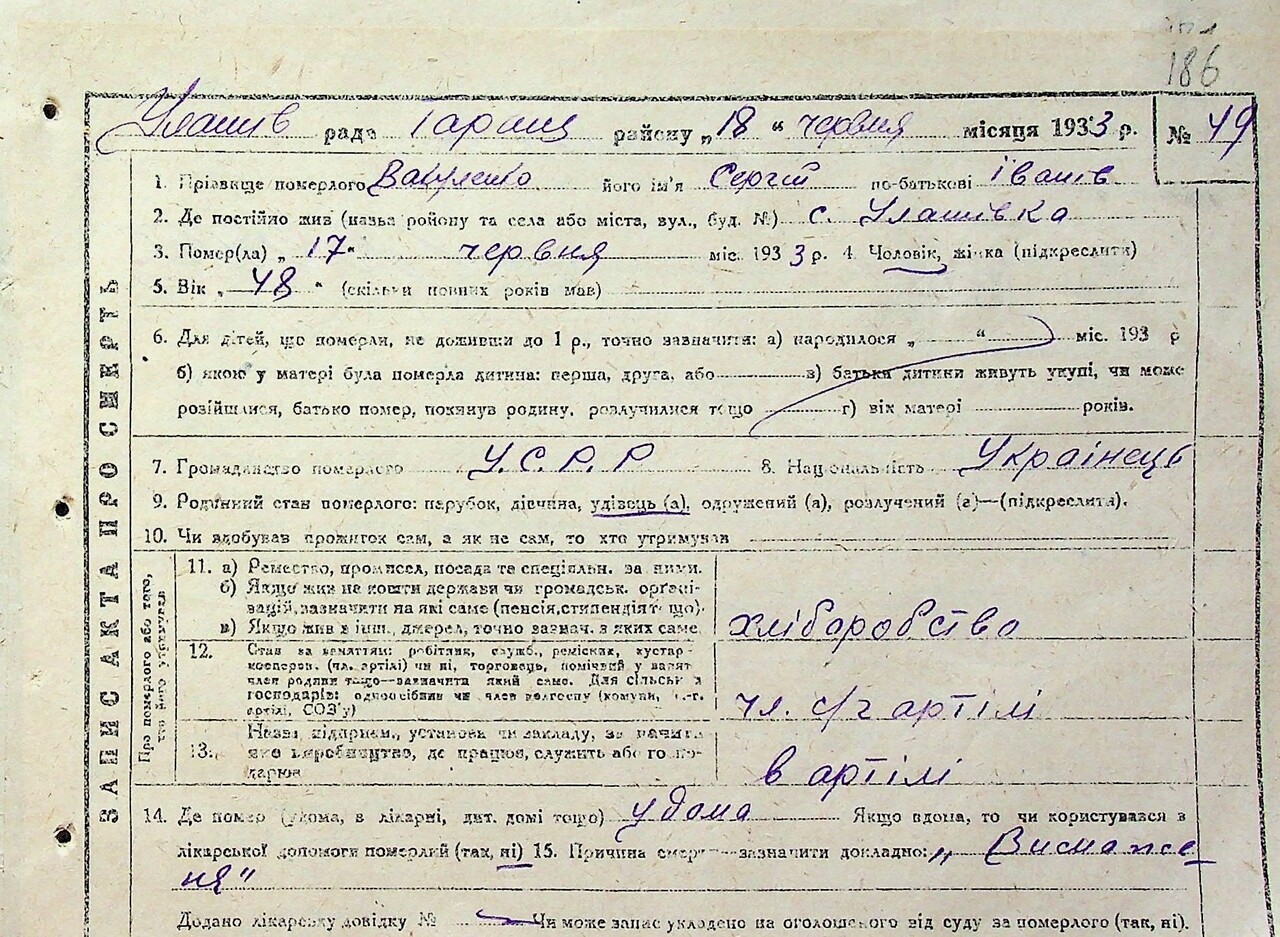 186
Улашів рада Таращ району „18“ червня місяця 1933 р. № 49
1. Прізвище померлого Вакуленко його ім'я Сергій по-батькові Іванів
2. Де постійно жив (назва району та села або міста, вул., буд. №) с. Улашівка
3. Помер(ла) „17“ червня міс. 1933 р. 4. Чоловік, жінка (підкреслити)
5. Вік „48“ (скільки повних років мав)
6. Для дітей, що померли, не доживши до 1 р., точно зазначити: а) народилося „ “ міс. 193 р
б) якою у матері була померла дитина: перша, друга, або в) батьки дитини живуть укупі, чи може
розійшлися, батько помер, покинув родину, розлучилися тощо г) вік матері років.
7. Громадянство померлого У.С.Р.Р 8. Національність Українець
9. Родинний стан померлого: парубок, дівчина, удівець (а), одружений (а), розлучений (а)—(підкреслити).
10. Чи здобував прожиток сам, а як не сам, то хто утримував
ЗАПИС АКТА ПРО СМЕРТЬ
Про померлого або того, хто його утримував
11. а) Ремество, промисел, посада та спеціяльн. за ними.
б) Якщо жив на кошти держави чи громадськ. органі-
зацій, зазначити на які саме (пенсія, стипендія тощо).
в) Якщо жив з інш. джерел, точно зазнач. з яких саме
хліборобство
12. Стан за заняттям: робітник, служб., ремісник, кустар-
кооперов. (чл. артілі) чи ні, торговець, помічний у занят
член родини тощо—зазначити який саме. Для сільськ
господарів: одноосібник чи член колгоспу (комуни, с.-г.
артілі, СОЗ'у)
чл. с/г артілі
13. Назва підприєм., установи чи закладу, зазначити
яке виробництво, де працює, служить або госпо-
дарює
в артілі
14. Де помер (удома, в лікарні, дит. домі тощо) удома Якщо вдома, то чи користувався з
лікарської допомоги померлий (так, ні) 15. Причина смерти—зазначити докладно: „Виснаже
ня“
Додано лікарську довідку № Чи може запис укладено на оголошеного від суду за померлого (так, ні).